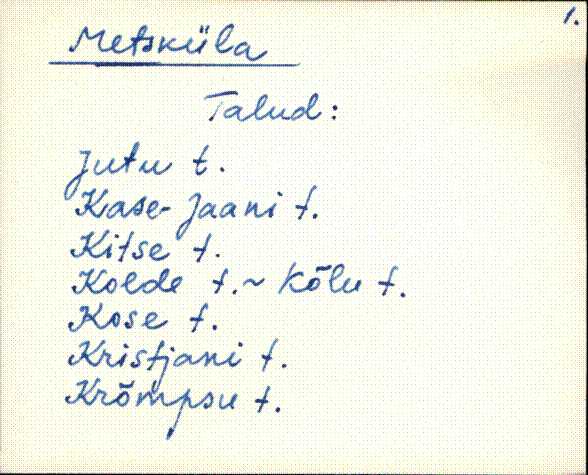 1.
Metsküla
Talud:
Jutu t.
Kase-Jaani t.
Kitse t.
Kolde t. ~ Kõlu t.
Kose t.
Kristjani t.
Krõmpsu t.